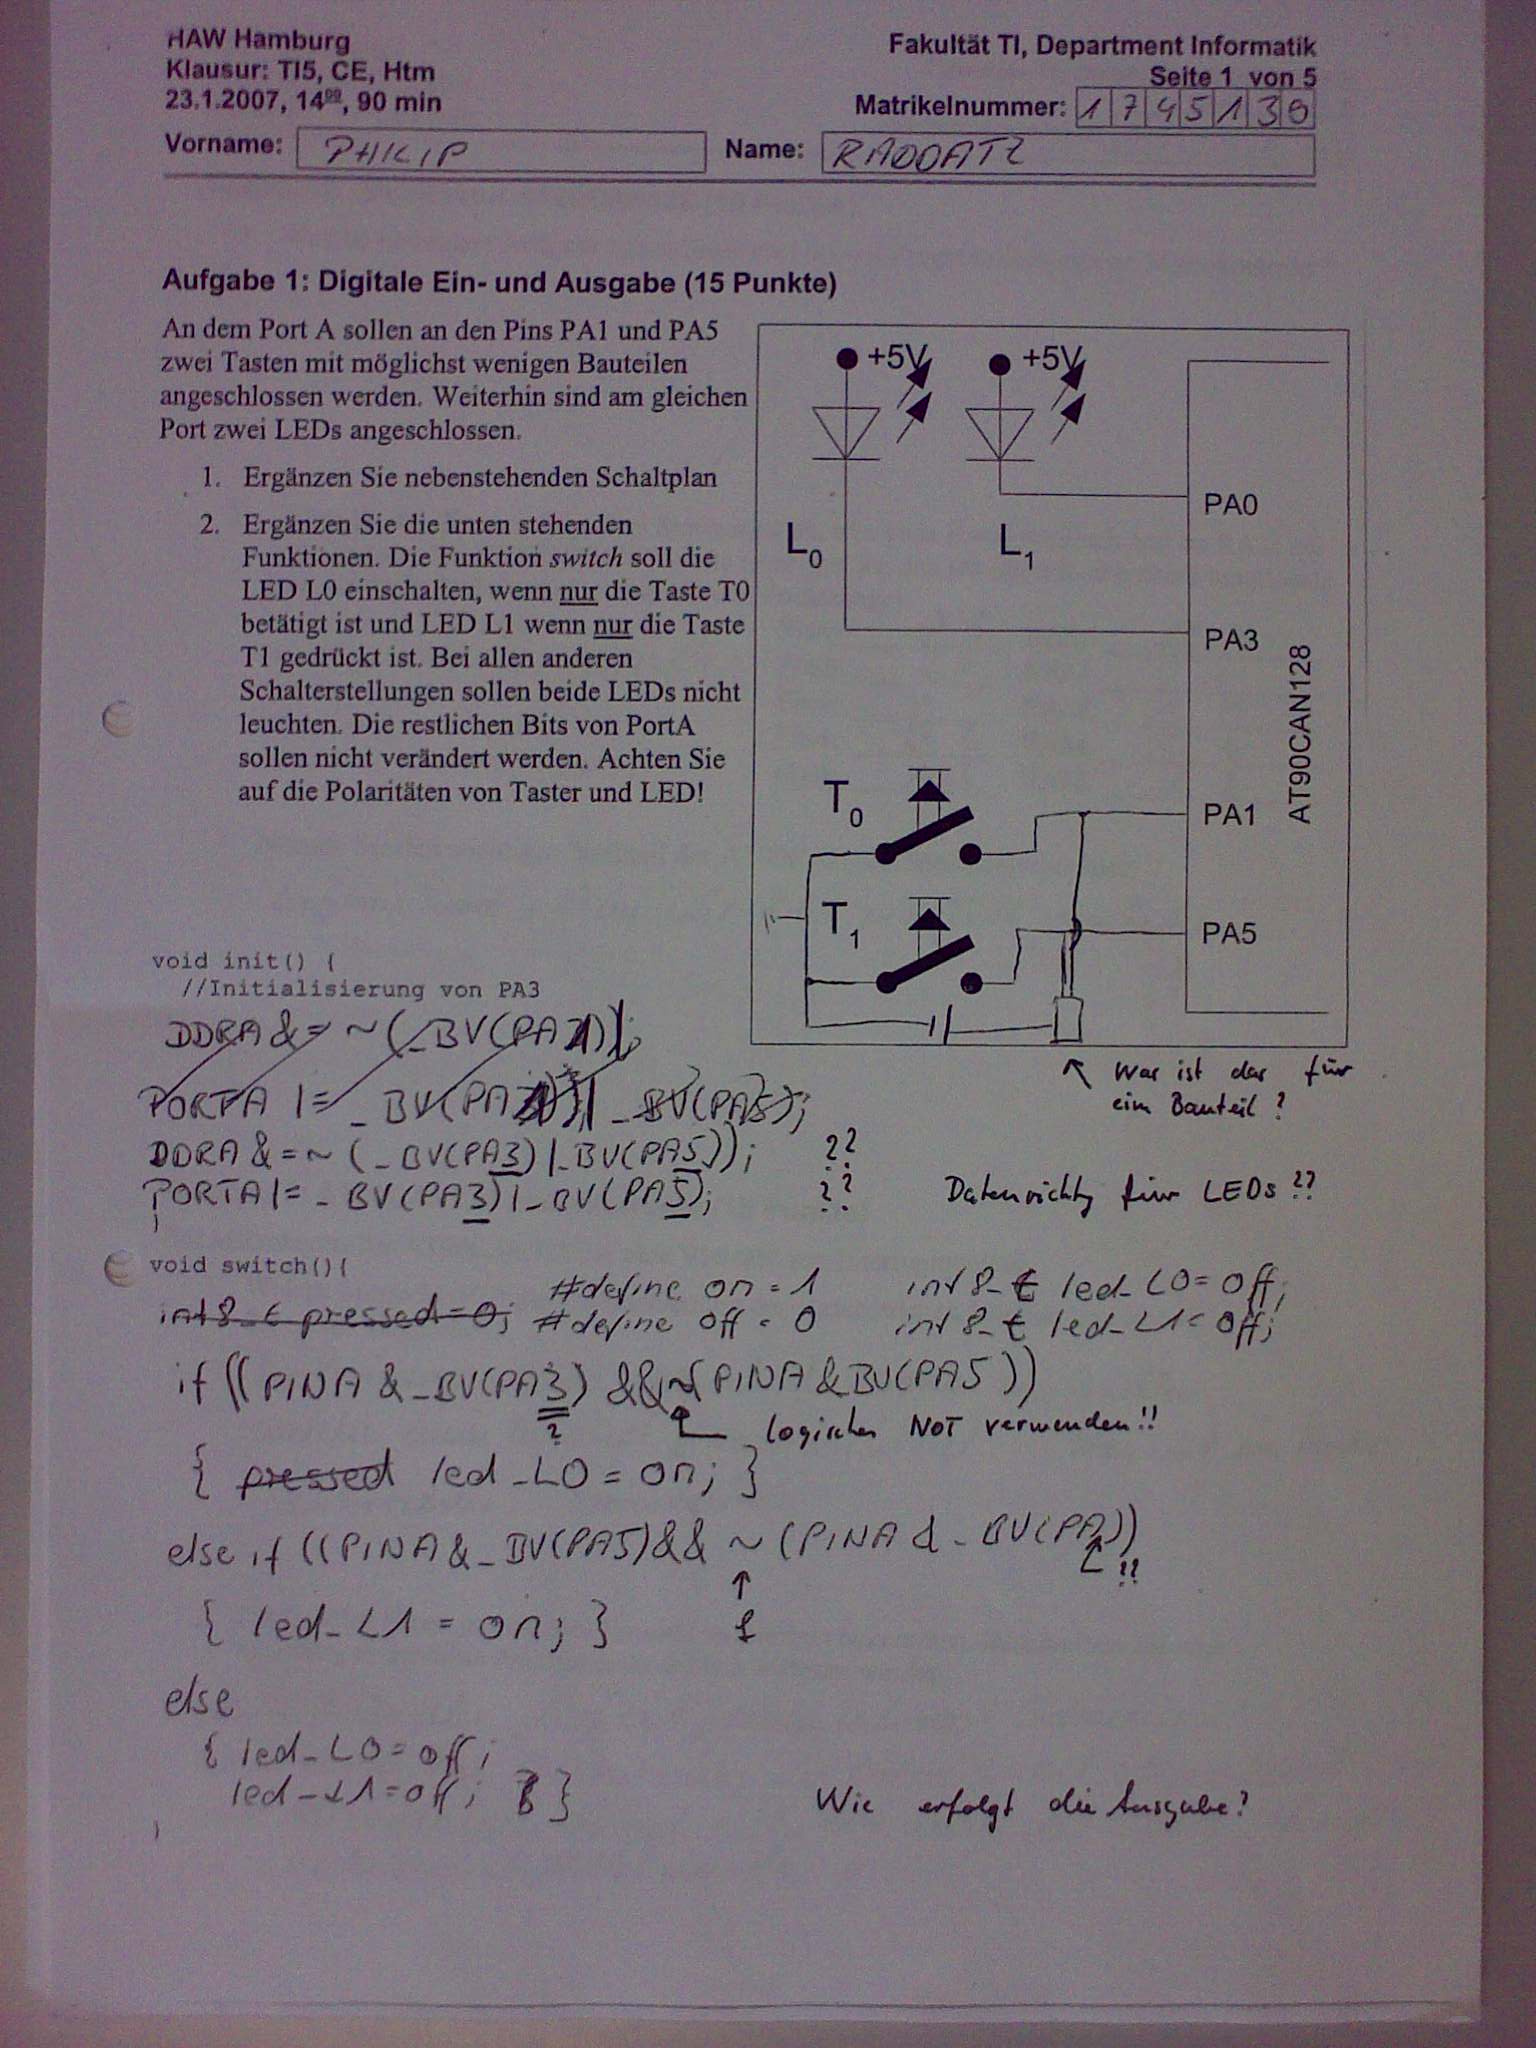 HAW Hamburg
Klausur: TI5, CE, Htm
23.1.2007, 14⁰⁰, 90 min
Fakultät TI, Department Informatik
Seite 1 von 5
Matrikelnummer: 1745139
Vorname: PHILIP
Name: RADDATZ
Aufgabe 1: Digitale Ein- und Ausgabe (15 Punkte)
An dem Port A sollen an den Pins PA1 und PA5
zwei Tasten mit möglichst wenigen Bauteilen
angeschlossen werden. Weiterhin sind am gleichen
Port zwei LEDs angeschlossen.
1. Ergänzen Sie nebenstehenden Schaltplan
2. Ergänzen Sie die unten stehenden
Funktionen. Die Funktion switch soll die
LED L0 einschalten, wenn nur die Taste T0
betätigt ist und LED L1 wenn nur die Taste
T1 gedrückt ist. Bei allen anderen
Schalterstellungen sollen beide LEDs nicht
leuchten. Die restlichen Bits von PortA
sollen nicht verändert werden. Achten Sie
auf die Polaritäten von Taster und LED!
+5V +5V
PA0
L0 L1
PA3
AT90CAN128
T0
PA1
T1
PA5
War ist das für
ein Bauteil?
void init() {
//Initialisierung von PA3
DDRA &= ~(_BV(PA1));
PORTA |= _BV(PA3) | _BV(PA5);
DDRA &= ~ (_BV(PA3) |_BV(PA5)); ??
PORTA |= _BV(PA3) |_BV(PA5); ?? Datenrichtg für LEDs ??
}
void switch(){
#define on = 1 int 8_t led_L0 = off;
int 8_t pressed = 0; #define off = 0 int 8_t led_L1 = off;
if ((PINA & _BV(PA3) && ~(PINA & BV(PA5))
? logisches NOT verwenden!!
{ pressed led_L0 = on; }
else if ((PINA & _BV(PA5) && ~ (PINA & _BV(PA))
??
{ led_L1 = on; } f
else
{ led_L0 = off;
led_L1 = off; }
Wie erfolgt die Ausgabe?
}